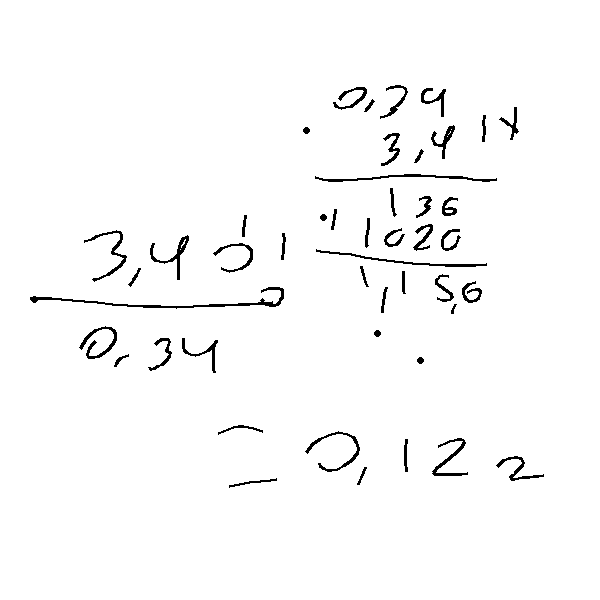 0,34
3,4 1x
136
1020
1,15,6
3,401
0,34
= 0,122